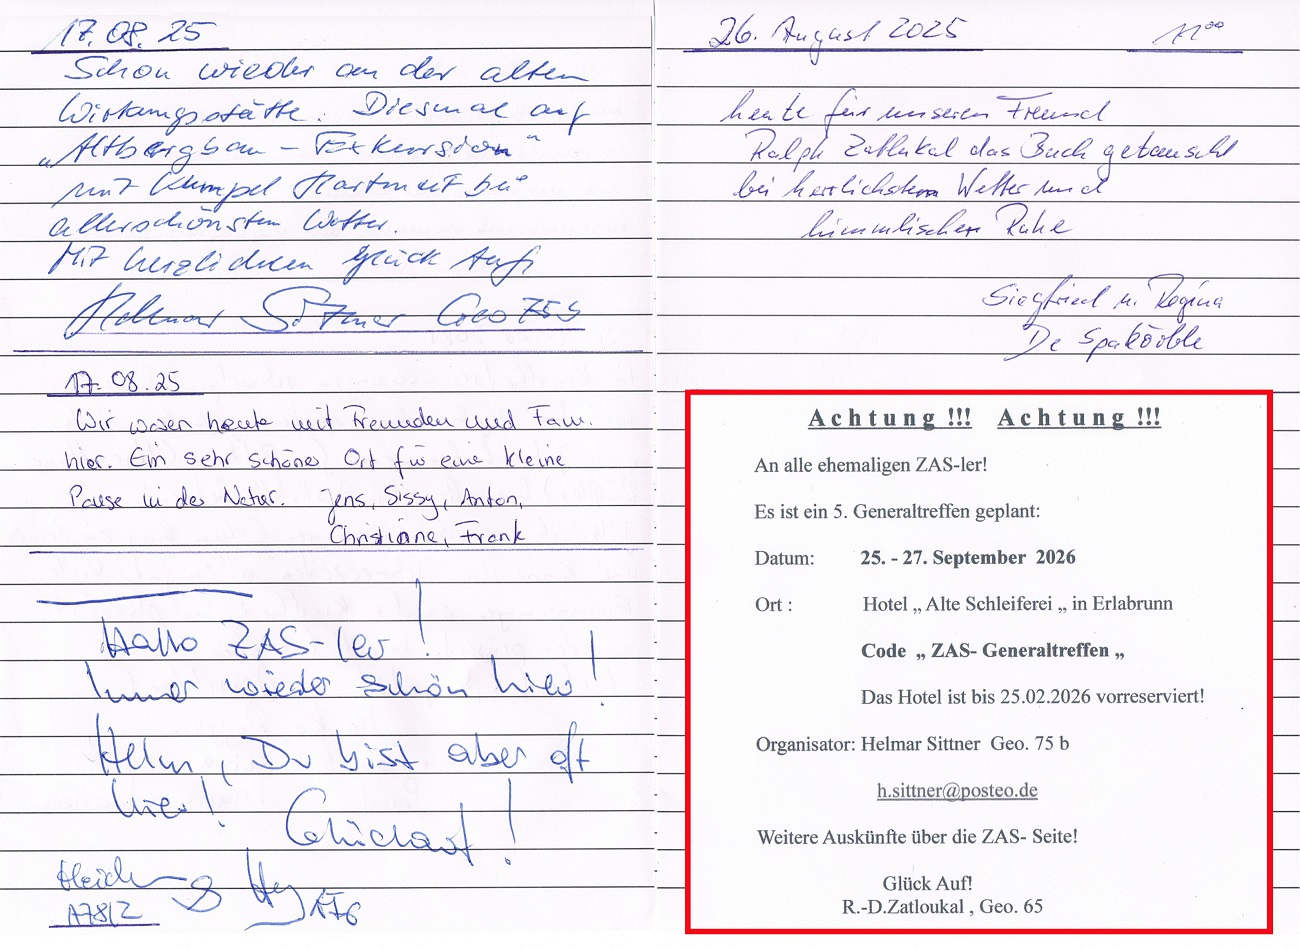 17.08.25
Schon wieder an der alten
Wirkungsstätte. Diesmal auf
„Altbergbau – Exkursion“
mit Kumpel Hartmut bei
allerschönsten Wetter.
Mit herzlichem Glück Auf!
Helmar Sittner Geo 75b
17.08.25
Wir waren heute mit Freunden und Fam.
hier. Ein sehr schöner Ort für eine kleine
Pause in der Natur. Jens, Sissy, Anton,
Christiane, Frank
Hallo ZAS-ler!
Immer wieder schön hier!
Helm, Du bist aber oft
hier! Glückauf!
A78/2
26. August 2025 11⁰⁰
heute für unseren Freund
Ralph Zatlukal das Buch getauscht
bei herrlichstem Wetter und
himmlischer Ruhe
Siegfried u. Regina
De
Achtung !!! Achtung !!!
An alle ehemaligen ZAS-ler!
Es ist ein 5. Generaltreffen geplant:
Datum: 25. - 27. September 2026
Ort : Hotel „ Alte Schleiferei „ in Erlabrunn
Code „ ZAS- Generaltreffen „
Das Hotel ist bis 25.02.2026 vorreserviert!
Organisator: Helmar Sittner Geo. 75 b
h.sittner@posteo.de
Weitere Auskünfte über die ZAS- Seite!
Glück Auf!
R.-D.Zatloukal , Geo. 65